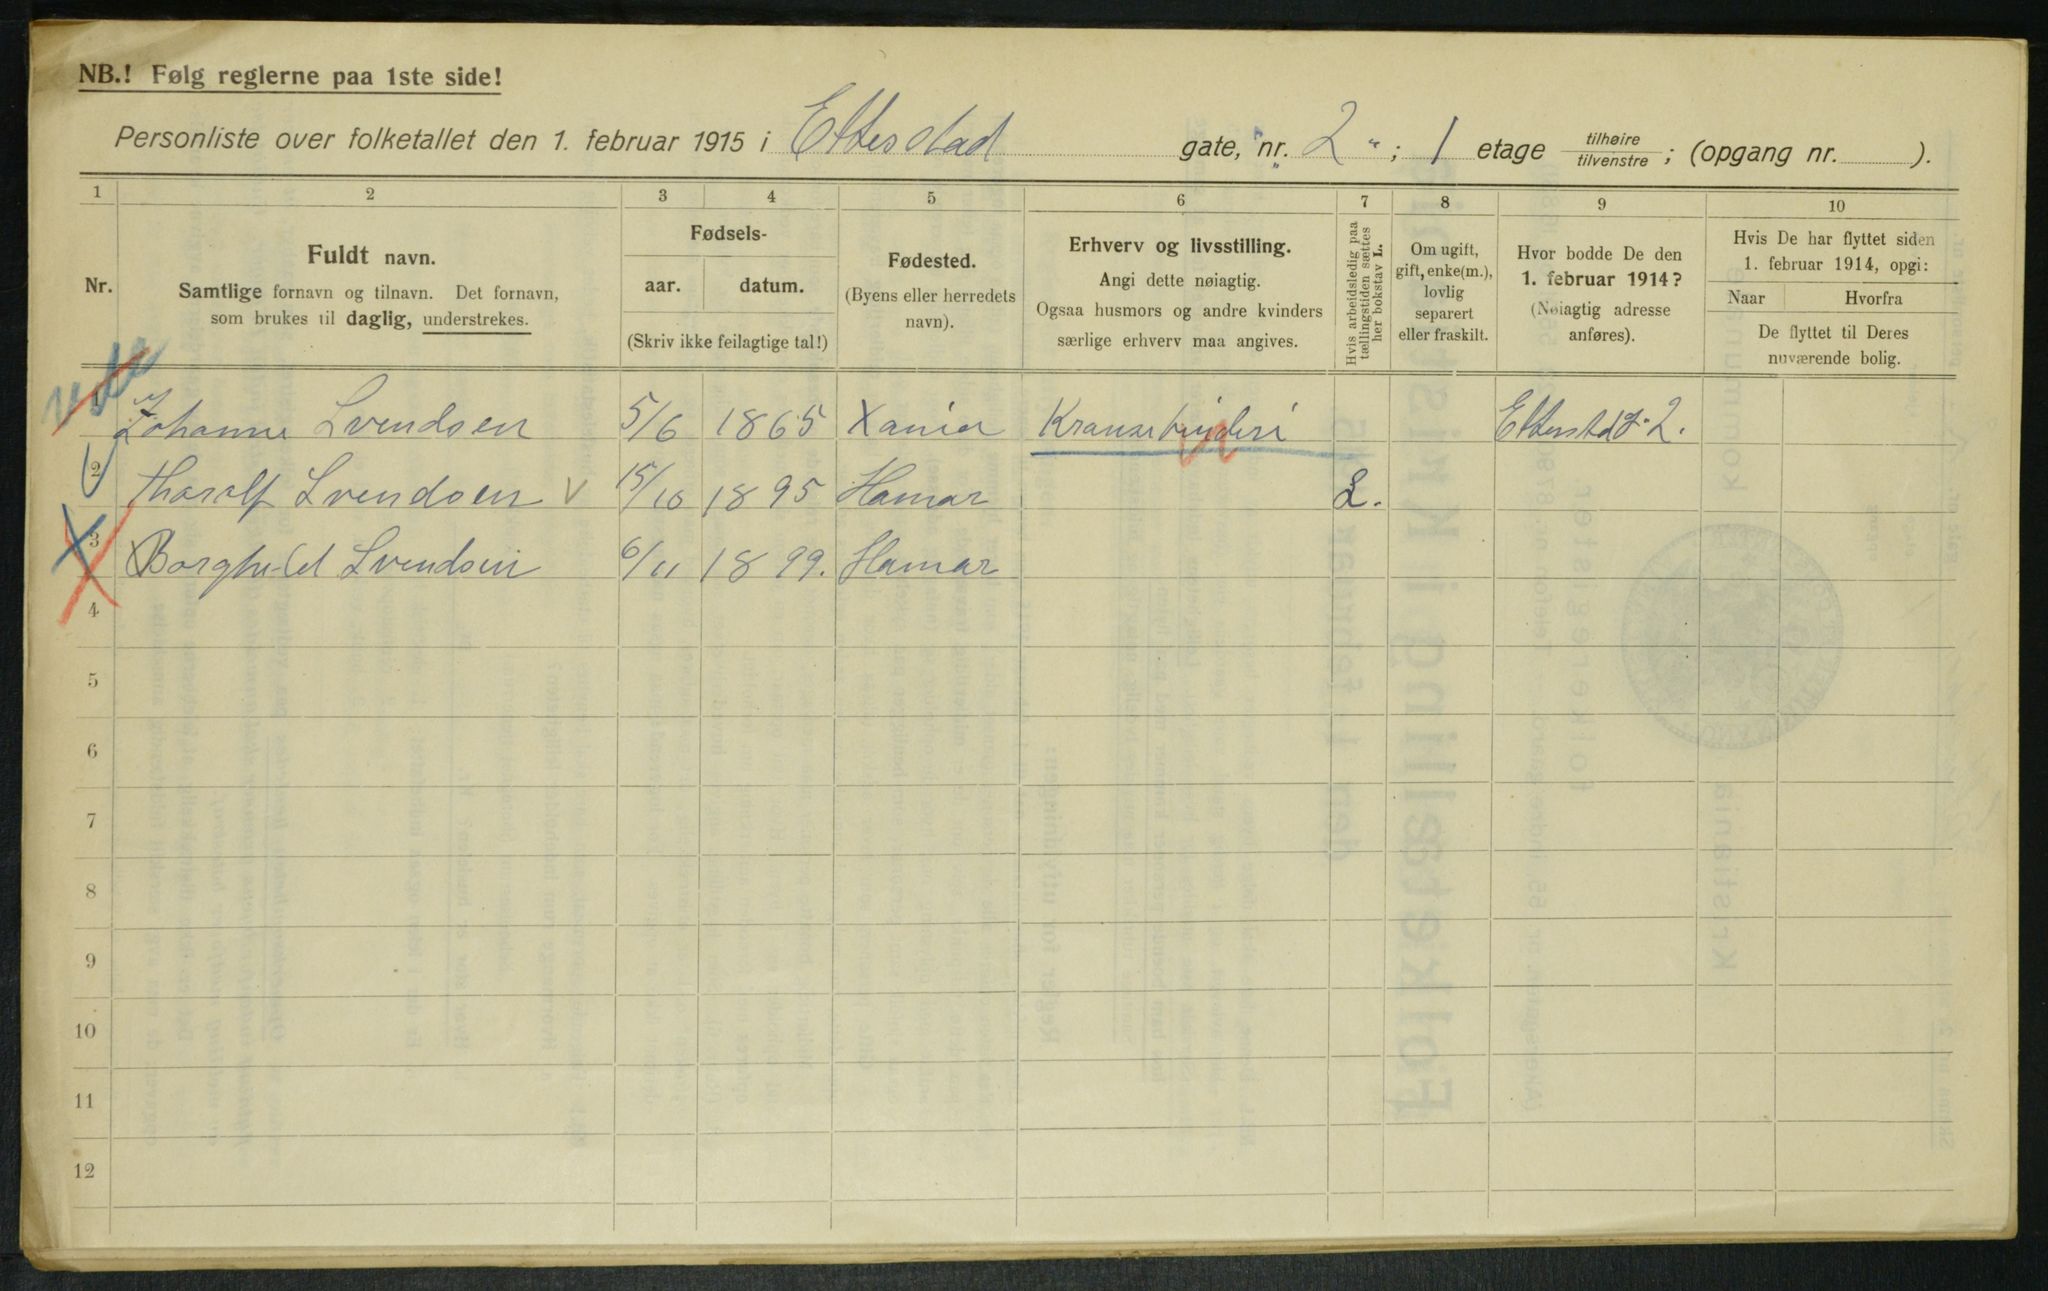 NB.! Følg reglerne paa 1ste side!
Personliste over folketallet den 1. februar 1915 i Ettersstad gate, nr. 2 ; 1 etage tilhøire tilvenstre ; (opgang nr. ).
1 2 3 4 5 6 7 8 9 10
Nr.
Fuldt navn.
Samtlige fornavn og tilnavn. Det fornavn,
som brukes til daglig, understrekes.
Fødsels-
aar. datum.
(Skriv ikke feilagtige tal!)
Fødested.
(Byens eller herredets
navn).
Erhverv og livsstilling.
Angi dette nøiagtig.
Ogsaa husmors og andre kvinders
særlige erhverv maa angives.
Hvis arbeidsledig paa
tællingstiden sættes
her bokstav L.
Om ugift,
gift, enke(m.),
lovlig
separert
eller fraskilt.
Hvor bodde De den
1. februar 1914?
(Nøiagtig adresse
anføres).
Hvis De har flyttet siden
1. februar 1914, opgi:
Naar Hvorfra
De flyttet til Deres
nuværende bolig.
1 Johanne Svendsen 5/6 1865 Xania Kransebinderi Etterstad 2.
2 Thoralf Svendsen V 15/10 1895 Hamar L.
3 Borghild Svendsen 6/11 1899. Hamar
4
5
6
7
8
9
10
11
12